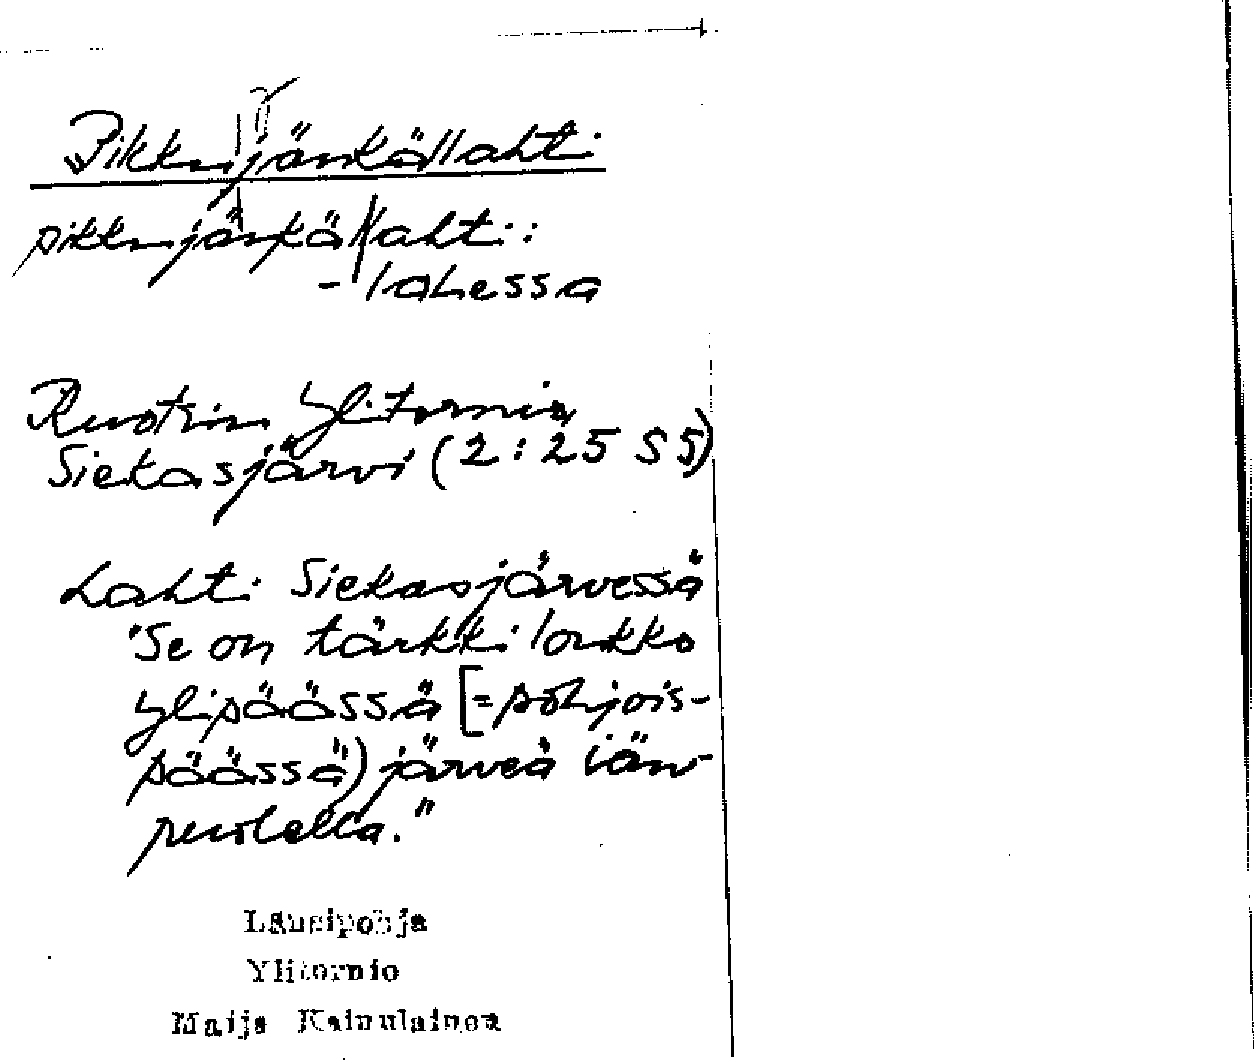 Pikkujänkällahti
pikkujänkällahti:
- lahessa
Ruotsin Ylitornio
Siekasjärvi (2:25 S5)
Lahti Siekasjärvessä
"Se on tärkki loukko
ylipäässä [=pohjois-
päässä) järveä iän-
puolella."
Länsipohja
Ylitornio
Maija Kainulainen